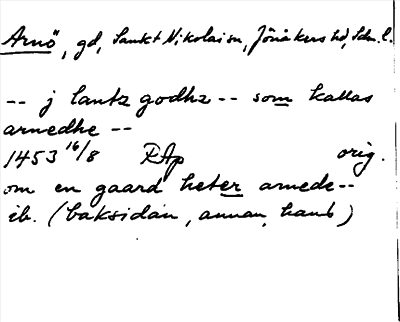 Arnö, gd, Sankt Nikolai sn, Jönåkers hd, Sdm. l.
-- j lantz godhz -- som kallas
arnedhe --
1453 16/8 RAp orig.
om en gaard heter arnede --
ib. (baksidan, annan hand)